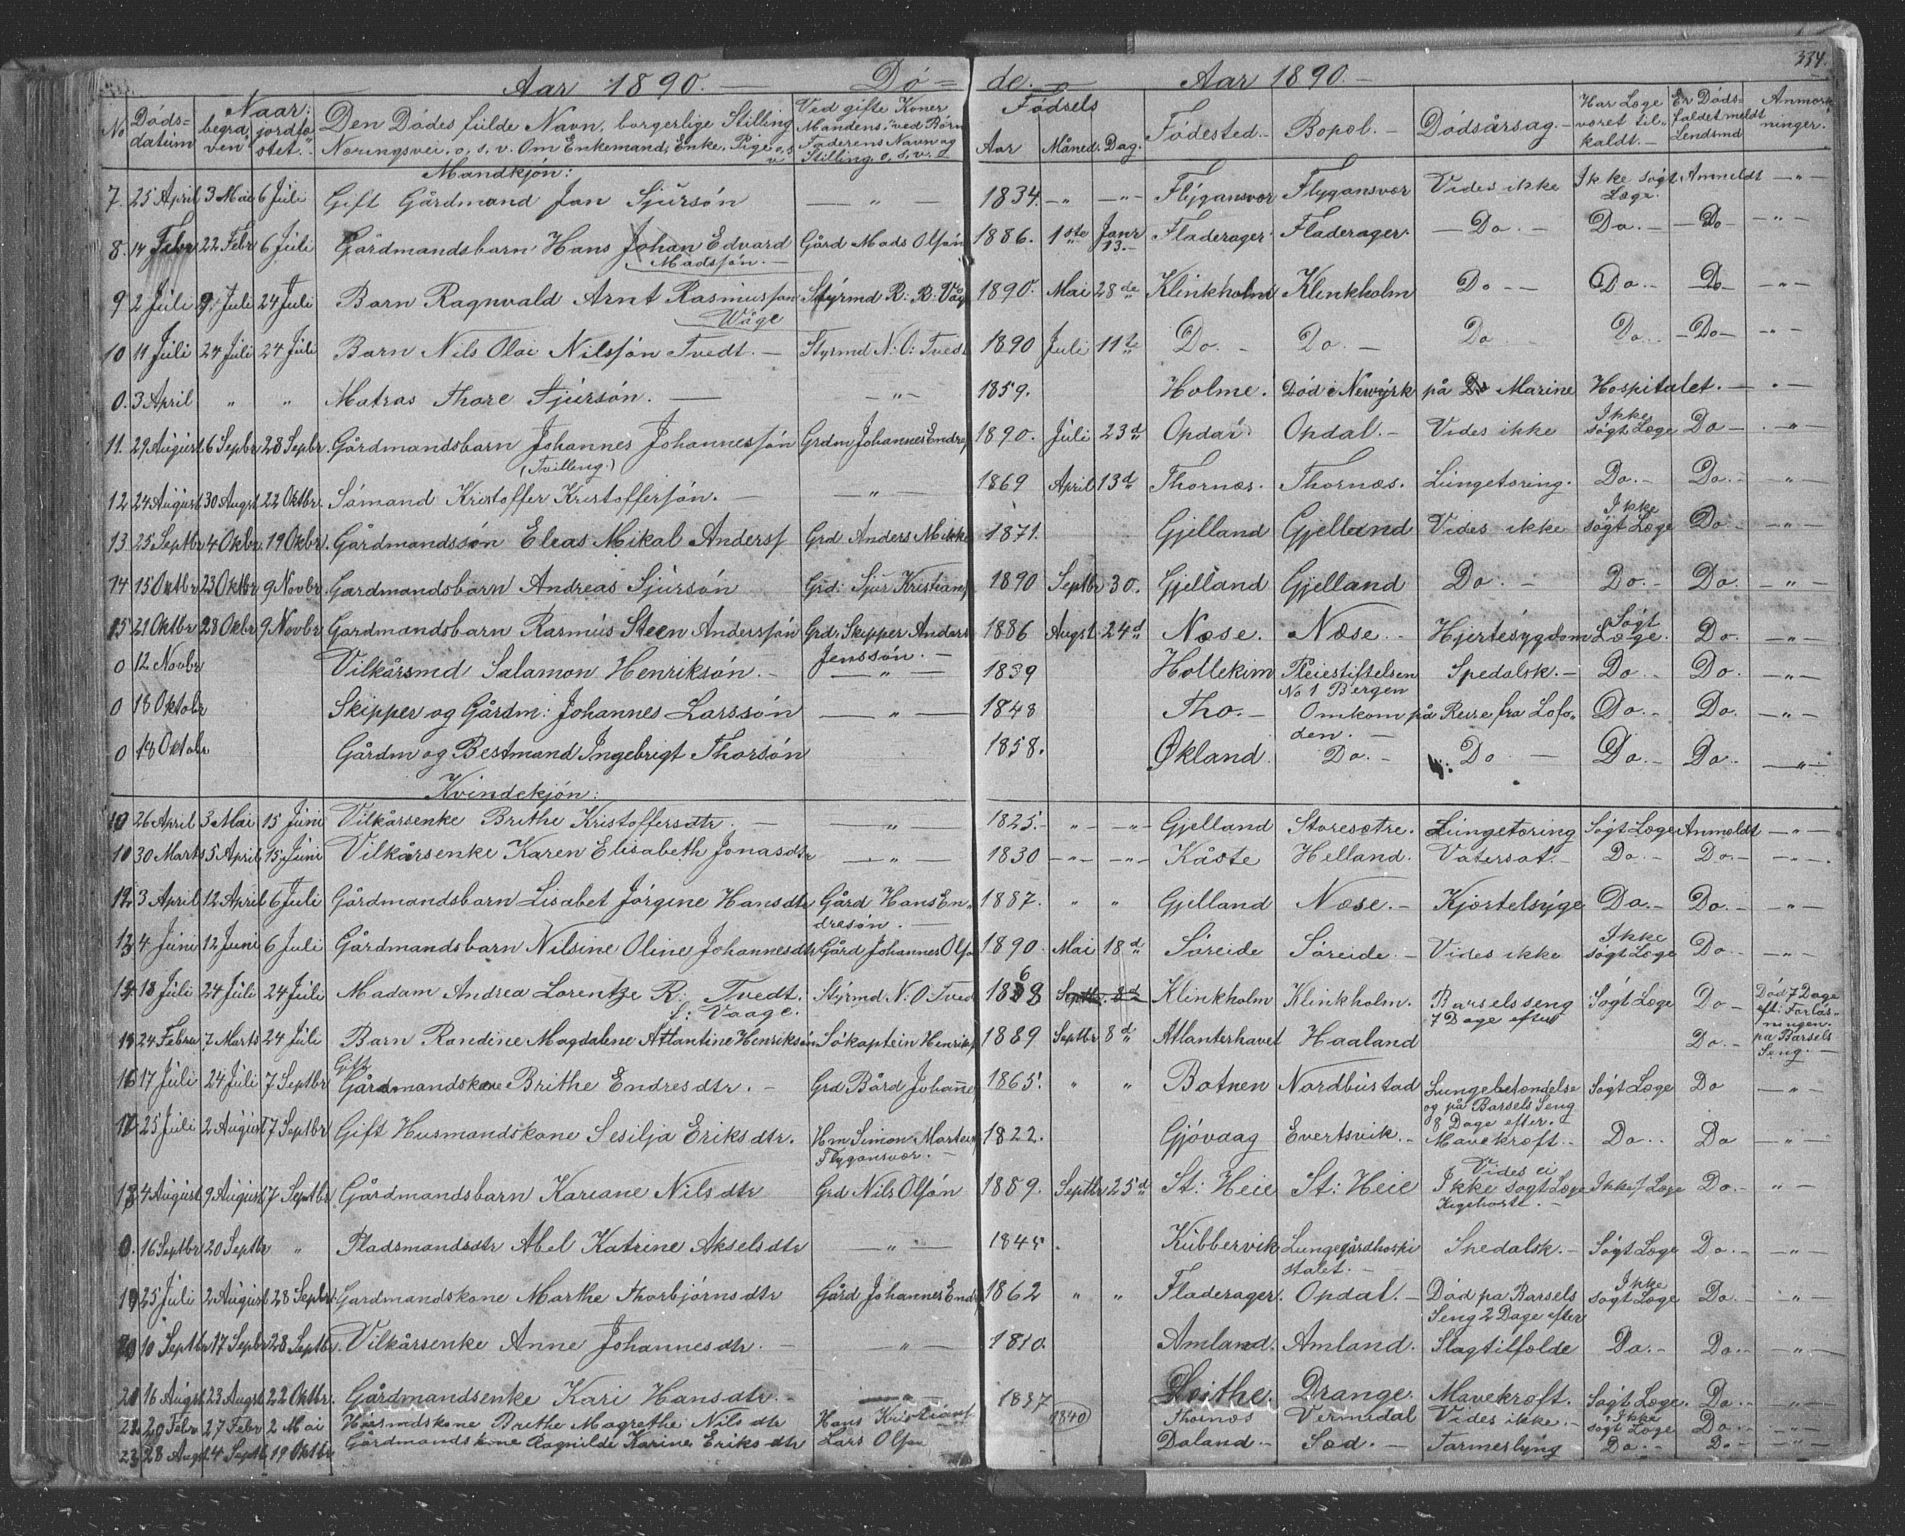 334.
Aar 1890. — Dö = de. — Aar 1890. —
No Döds= datum Naar: begra ven jordfæ stet. Den Dödes fulde Navn, borgerlige Stilling Næringsvei, o, s, v. Om Enkemand, Enke, Pige o, s v. Ved gifte Koner Mandens, ved Börn Faderens Navn og Stilling, o, s, v. Födsels Aar Måned. Dag. Födested. — Bopæl. — Dödsårsag. — Har Læge været til= kaldt. — Er Döds= faldet meldt Lendsmd Anmærk ninger.
Mandkjön:
7. 25 April 3 Mai 6 Juli Gift Gårdmand Jan Sjursön — " — 1834. — " — — " — Flygansvær Flygansvær Vides ikke Ikke søgt Læge. Anmeldt — " —
8. 14 Febr 22 Febr 6 Juli Gårdmandsbarn Hans Johan Edvard Madssön. — Gård Mads Olsön 1886. 1ste Janr 13. — Fladerager Fladerager. — Do. — Do. — Do — " —
9 2 Juli 9 Juli 24 Juli Barn Ragnvald Arnt Rasmussøn Wåge Styrmd R: B: Våg 1890. Mai 28de Klinkholm Klinkholm Do — Do. — Do — " —
10 11 Juli 24 Juli 24 Juli Barn Nils Olai Nilssön Tvedt. — Styrmd N: O: Tvedt 1890 Juli 11te Do. — Do. — Do Do — Do — — " —
0. 3 April " " Matros Thore Sjursön. — — " — 1859. Holme. Död i Newyórk på Do Marine Hospitalet. — " —
11. 29 August 6 Sepbr 28 Sepbr. Gårdmandsbarn Johannes Johannessön (Tvilling.) Grdm Johannes Endres 1890. Juli 23d Opdal. Opdal. — Vides ikke Ikke søgt Læge Do — " —
12 24 August 30 Augst 22 Oktbr. Sömand Kristoffer Kristoffersön. — " — 1869 April 13d Thornæs. Thornæs. Lungetæring. Do. — Do. — — " —
13 25 Septbr 4 Okbr 19 Okbr. Gårdmandssön Elias Mikal Anders Grd. Anders Mikke 1871. Gjelland Gjelland Vides ikke Ikke søgt Læge Do — " —
14 15 Oktbr 23 Oktbr 9 Novbr. Gardmandsbarn Andreas Sjursön Grd: Sjur Kristians 1890 Septbr 30. Gjelland Gjelland Do. — Do. — Do. — " —
15 21 Oktbr 28 Okbr 9 Novbr Gardmandsbarn Rasmus Steen Anderssön Grd: Skipper Anders Jenssön. — 1886 Augst 24d Næse. Næse. — Hjertesygdom Søgt Læge. Do. — " —
0 12 Novbr Vilkårsmd Salamon Henriksön. — — " — 1839 Hollekim Pleiestiftelsen No 1 Bergen Spedalsk. — Do. — Do. — " —
0 18 Oktobr Skipper og Gårdm: Johannes Larssön — " — 1848 Tho. — Omkom på Reise fra Lofo= den. — Do. — Do. — " —
0 18 Oktobr. Gårdm og Bestmand Ingebrigt Thorsön 1858. Økland. Do. — Do — Do — Do.. — " —
Kvindekjön:
10 26 April 3 Mai 15 Juni Vilkårsenke Brithe Kristoffersdtr. — — " — 1825. " — " — Gjelland Storesætre. Lungetæring Søgt Læge Anmeldt — " —
11 30 Marts 5 April 15 Juni Vilkårsenke Karen Elisabeth Jonasdtr — " 1830 — " — — " — Kåste Helland. Vatersot. — Do. — Do. — — " — .
12 3 April 12 April 6 Juli Gårdmandsbarn Lisabet Jörgine Hansdtr Gård Hans En= dresön. — 1887. " " Gjelland Næse. — Kjertelsyge Do. — Do. — — " —
13 4 Juni 12 Juni 6 Juli Gårdmandsbarn Nilsine Oline Johannesdtr Gård Johannes Olsö 1890. Mai 18d Söreide Söreide. — Vides ikke Ikke søgt Læge Do — " —
14 18 Juli 24 Juli 24 Juli Madam Andrea Lorentze R: Tvedt. f: Vaage. Styrmd N. O. Tved 1868 Septbr. 8d Klinkholm Klinkholm. Barselsseng 7 Dage efter Søgt Læge Do — Död 7 Dage eft: Forlös= ningen. på Barsels Seng. —
15 24 Febru 7 Marts 24 Juli Barn Randine Magdalene Atlantine Henriksön Sökaptein Henriks 1889 Septbr 8d Atlanterhavet Haaland Do. —
16 17 Juli 24 Juli 7 Septbr Gift Gårdmandskone Brithe Endresdtr. — Grd Bård Johanne 1865. " " Botnen Nordbustad Lungebetændelse og på Barsels Seng 8 Dage efter. — Søgt Læge Do — " —
17 25 Juli 2 August 7 Septbr Gift Husmandskone Sesilja Eriksdtr. Hm Simon Martens Flygansvær. — 1822. Gjövaag Evertsvik. — Mavekræft. — Do. . Do — " —
18 4 August 9 August 7 Septbr Gårdmandsbarn Kariane Nilsdtr Grd Nils Olsön 1889. Septbr 25d St: Heie St: Heie Vides ei Ikke søgt Læge Kigehoste. — Ikke s Læge Do. — " —
0. 16 Septbr 20 Septbr " Pladsmandsdtr Abel Katrine Akselsdtr " — 1845 . Kubbervik Lungegårdhospi talet. — Spedalsk. — Søgt Læge Do. — " —
19 25 Juli 2 August 28 Septbr Gardmandskone Marthe Thorbjörnsdtr Gård Johannes End 1862 " " Fladerager. Opdal. — Död på Barsels Seng 2 Dage efter Ikke søgt Læge Do. — " —
20 10 Septbr 17 Sepbr 28 Septbr. Vilkårsenke Anne Johannesdtr. — — " — 1810. Amland. Amland. Slagtilfælde Do. — Do. — — " —
21 16 Augst 23 Augst 22 Oktbr. Gårdmandsenke Kari Hansdtr. — — " — 1837 Drange. Mavekræft. Søgt Læge. Do. — — " —
22 20 Febr 27 Febr 2 Mai Husmdskone Brithe Magrethe Nilsdtr Hans Kristians 1840 Thornæs Vermedal Vides ikke. — Ikke søgt Læge Do. — — " —
23 28 Augst 4 Septb 19 Oktbr Gårdmandskone Ragnilde Karine Eriksdtr Lars Olsön — Daland — Sæd. — Tarmerlyng Do. — Do — — " —